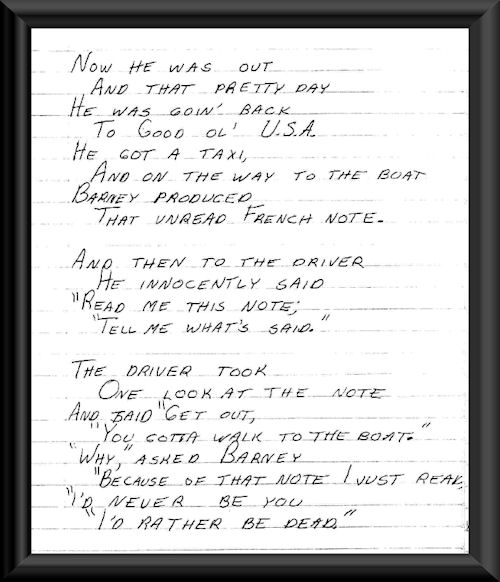 Now he was out
And that pretty day
He was goin' back
To Good ol' U.S.A.
He got a taxi,
And on the way to the boat
Barney produced
That unread French note.
And then to the driver
He innocently said
"Read me this note;
"Tell me what's said."
The driver took
One look at the note
And said "Get out,
"You gotta walk to the boat."
"Why," asked Barney
"Because of that note I just read,
"I'd never be you
"I'd rather be dead."